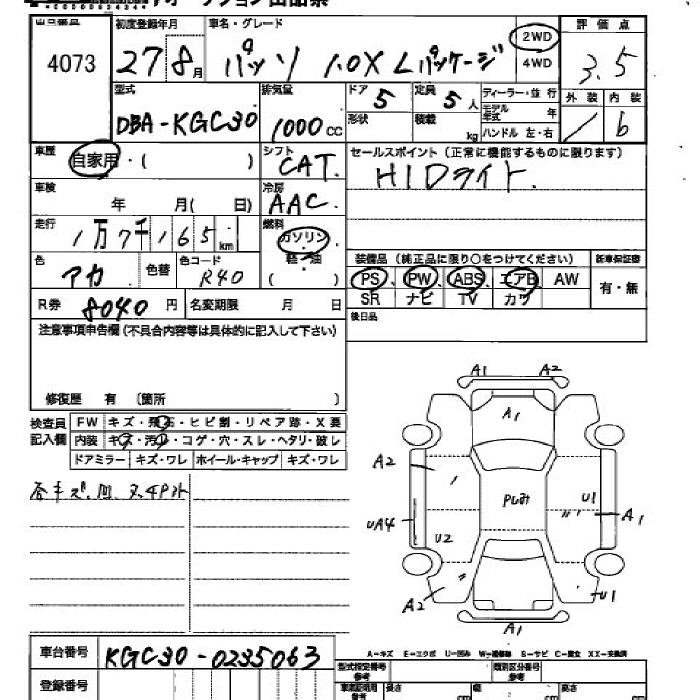 4073
初度登録年月
27 8月
車名・グレード
パッソ 1.0X Lパッケージ
2WD
4WD
評価点
3.5
型式
DBA-KGC30
排気量
1000cc
ドア
5
定員
5人
形状
積載
kg
ディーラー・並行
モデル年式 年
ハンドル 左・右
外装
内装
b
車歴
自家用・( )
シフト
CAT.
セールスポイント(正常に機能するものに限ります)
HIDライト.
車検
年 月( 日)
冷房
AAC.
走行
1万7千165km
燃料
ガソリン
軽・油
( )
色
アカ
色替
色コード
R40
装備品(純正品に限り○をつけてください)
新車保証書
PS、PW、ABS、エアB AW
SR ナビ TV カワ
有・無
R券
8040円
名変期限 月 日
後日品
注意事項申告欄(不具合内容等は具体的に記入して下さい)
修復歴 有 〔箇所 〕
検査員
記入欄
FW キズ・飛石・ヒビ割・リペア跡・X要
内装 キズ・汚れ・コゲ・穴・スレ・ヘタリ・破レ
ドアミラー キズ・ワレ ホイール・キャップ キズ・ワレ
A1 A2
A1
A2
Pしみ
U1
A1
UA4
U2
A2
U1
A1
A-キズ E-エクボ U-凹み W-補修跡 S-サビ C-腐食 XX-交換済
車台番号
KGC30-0235063
登録番号
型式指定番号
類別区分番号
長さ
cm
幅
cm
高さ
cm